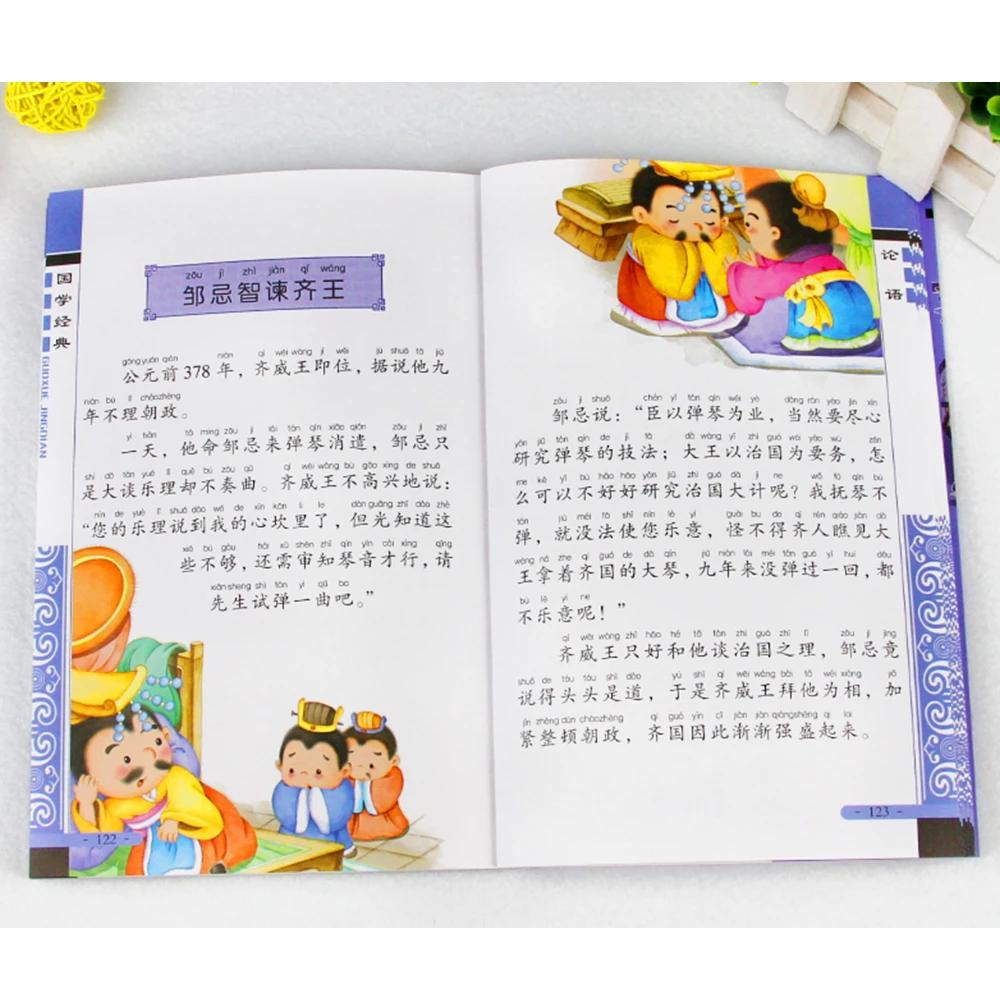 国学经典
GUOXUE JINGDIAN
zōu jì zhì jiàn qí wáng
邹忌智谏齐王
gōng yuán qián nián qí wēi wáng jí wèi jù shuō tā jiǔ
公元前378年，齐威王即位，据说他九
nián bù lǐ cháozhèng
年不理朝政。
yì tiān tā mìng zōu jì lái tán qín xiāo qiǎn zōu jì zhǐ
一天，他命邹忌来弹琴消遣，邹忌只
shì dà tán yuè lǐ què bú zòu qǔ qí wēi wáng bù gāo xìng de shuō
是大谈乐理却不奏曲。齐威王不高兴地说：
nín de yuè lǐ shuō dào wǒ de xīn kǎn lǐ le dàn guāng zhī dào zhè
“您的乐理说到我的心坎里了，但光知道这
xiē bú gòu hái xū shěn zhī qín yīn cái xíng qǐng
些不够，还需审知琴音才行，请
xiān sheng shì tán yì qǔ ba
先生试弹一曲吧。”
- 122 -
论语
zōu jì shuō chén yǐ tán qín wéi yè dāng rán yào jìn xīn
邹忌说：“臣以弹琴为业，当然要尽心
yán jiū tán qín de jì fǎ dà wáng yǐ zhì guó wéi yào wù zěn
研究弹琴的技法；大王以治国为要务，怎
me kě yǐ bù hǎo hǎo yán jiū zhì guó dà jì ne wǒ fǔ qín bù
么可以不好好研究治国大计呢？我抚琴不
tán jiù méi fǎ shǐ nín lè yì guài bu de qí rén qiáo jiàn dà
弹，就没法使您乐意，怪不得齐人瞧见大
wáng ná zhe qí guó de dà qín jiǔ nián lái méi tán guò yì huí dōu
王拿着齐国的大琴，九年来没弹过一回，都
bú lè yì ne
不乐意呢！”
qí wēi wáng zhǐ hǎo hé tā tán zhì guó zhī lǐ zōu jì jìng
齐威王只好和他谈治国之理，邹忌竟
shuō de tóu tóu shì dào yú shì qí wēi wáng bài tā wéi xiàng jiā
说得头头是道，于是齐威王拜他为相，加
jǐn zhěng dùn cháozhèng qí guó yīn cǐ jiàn jiàn qiángshèng qǐ lai
紧整顿朝政，齐国因此渐渐强盛起来。
- 123 -